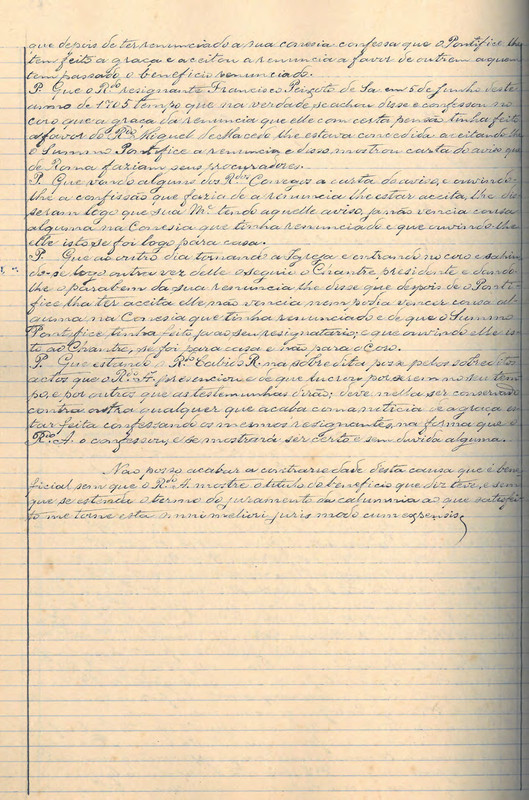 que depois de ter renunciado a sua conesia confessa que o Pontifice lhe
tem feito a graça e aceitou a renuncia a favor de outrem a quem
tem passado o beneficio renunciado.
P. Que o R.do resignante Francisco Peixoto de Sa em 5 de Junho deste
anno de 1705 tempo que na verdade se achou disse e confessou no
coro que a graça da renuncia que elle com certa pensão tinha feito
a favor do R.do Miguel de Macedo lhe estava concedida aceitando lhe
o Summo Pontifice a renuncia e disso mostrou carta do aviso que
de Roma faziam seus procuradores.
P. Que vendo alguns dos R.dos Conegos a carta do aviso, e ouvindo-
lhe a confissão que fazia de a renuncia lhe estar aceita, lhe dis
seram logo que sua M.ce tendo aquelle aviso, ja não vencia cousa
alguma na Conesia que tinha renunciado e que ouvindo-lhe
elle isto se foi logo para casa.
P. Que ao outro dia tornando a Igreja e entrando no coro e sahin
do-se logo outra vez delle o seguiu o Chantre, presidente e dando
lhe o parabem da sua renuncia lhe disse que depois de o Ponti-
fice lha ter acceita elle não vencia nem podia vencer cousa al
guma na Conesia que tinha renunciado e de que o Summo
Pontifice tinha feito ja ao seu resignatario; e que ouvindo elle is
to ao Chantre, se foi para casa e não para o Coro.
P. Que estando o R.do Cabido R. na sobredita posse pelos sobreditos
actos que o R.do A. presenciou e de que lucrou por serem no seu tem
po, e por outros que as testemunhas dirão; deve nella ser conservado
contra outra qualquer que acaba com a noticia de a graça es
tar feita confessando os mesmos resignantes, na forma que o
R.do A. o confessou, e se mostrará ser certo e sem duvida alguma.
Não posso acabar a contrariedade desta causa que é bene
ficial sem que o R.do A. mostre o titulo do beneficio que diz teve, e sem
que se estenda o termo do juramento da calumnia ao que satisfei
to me torne esta omni meliori juris modo cum expensis